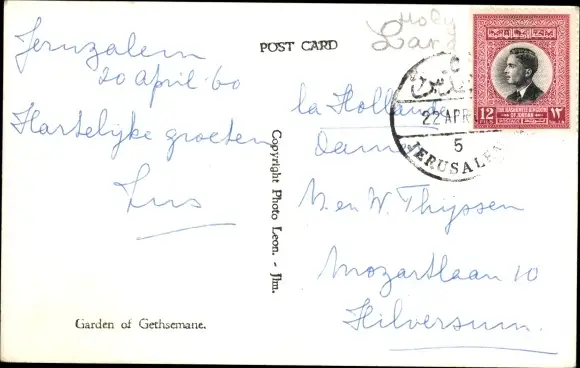 Jeruzalem
20 April '60
Hartelijke groeten
Zus
Garden of Gethsemane.
POST CARD
Copyright Photo Leon. - Jlm.
Holy
Land
القدس
22 APR
5
JERUSALEM
12
THE HASHEMITE KINGDOM
OF JORDAN
١٢
la Hollande
Dames
Mozartlaan 10
Hilversum.